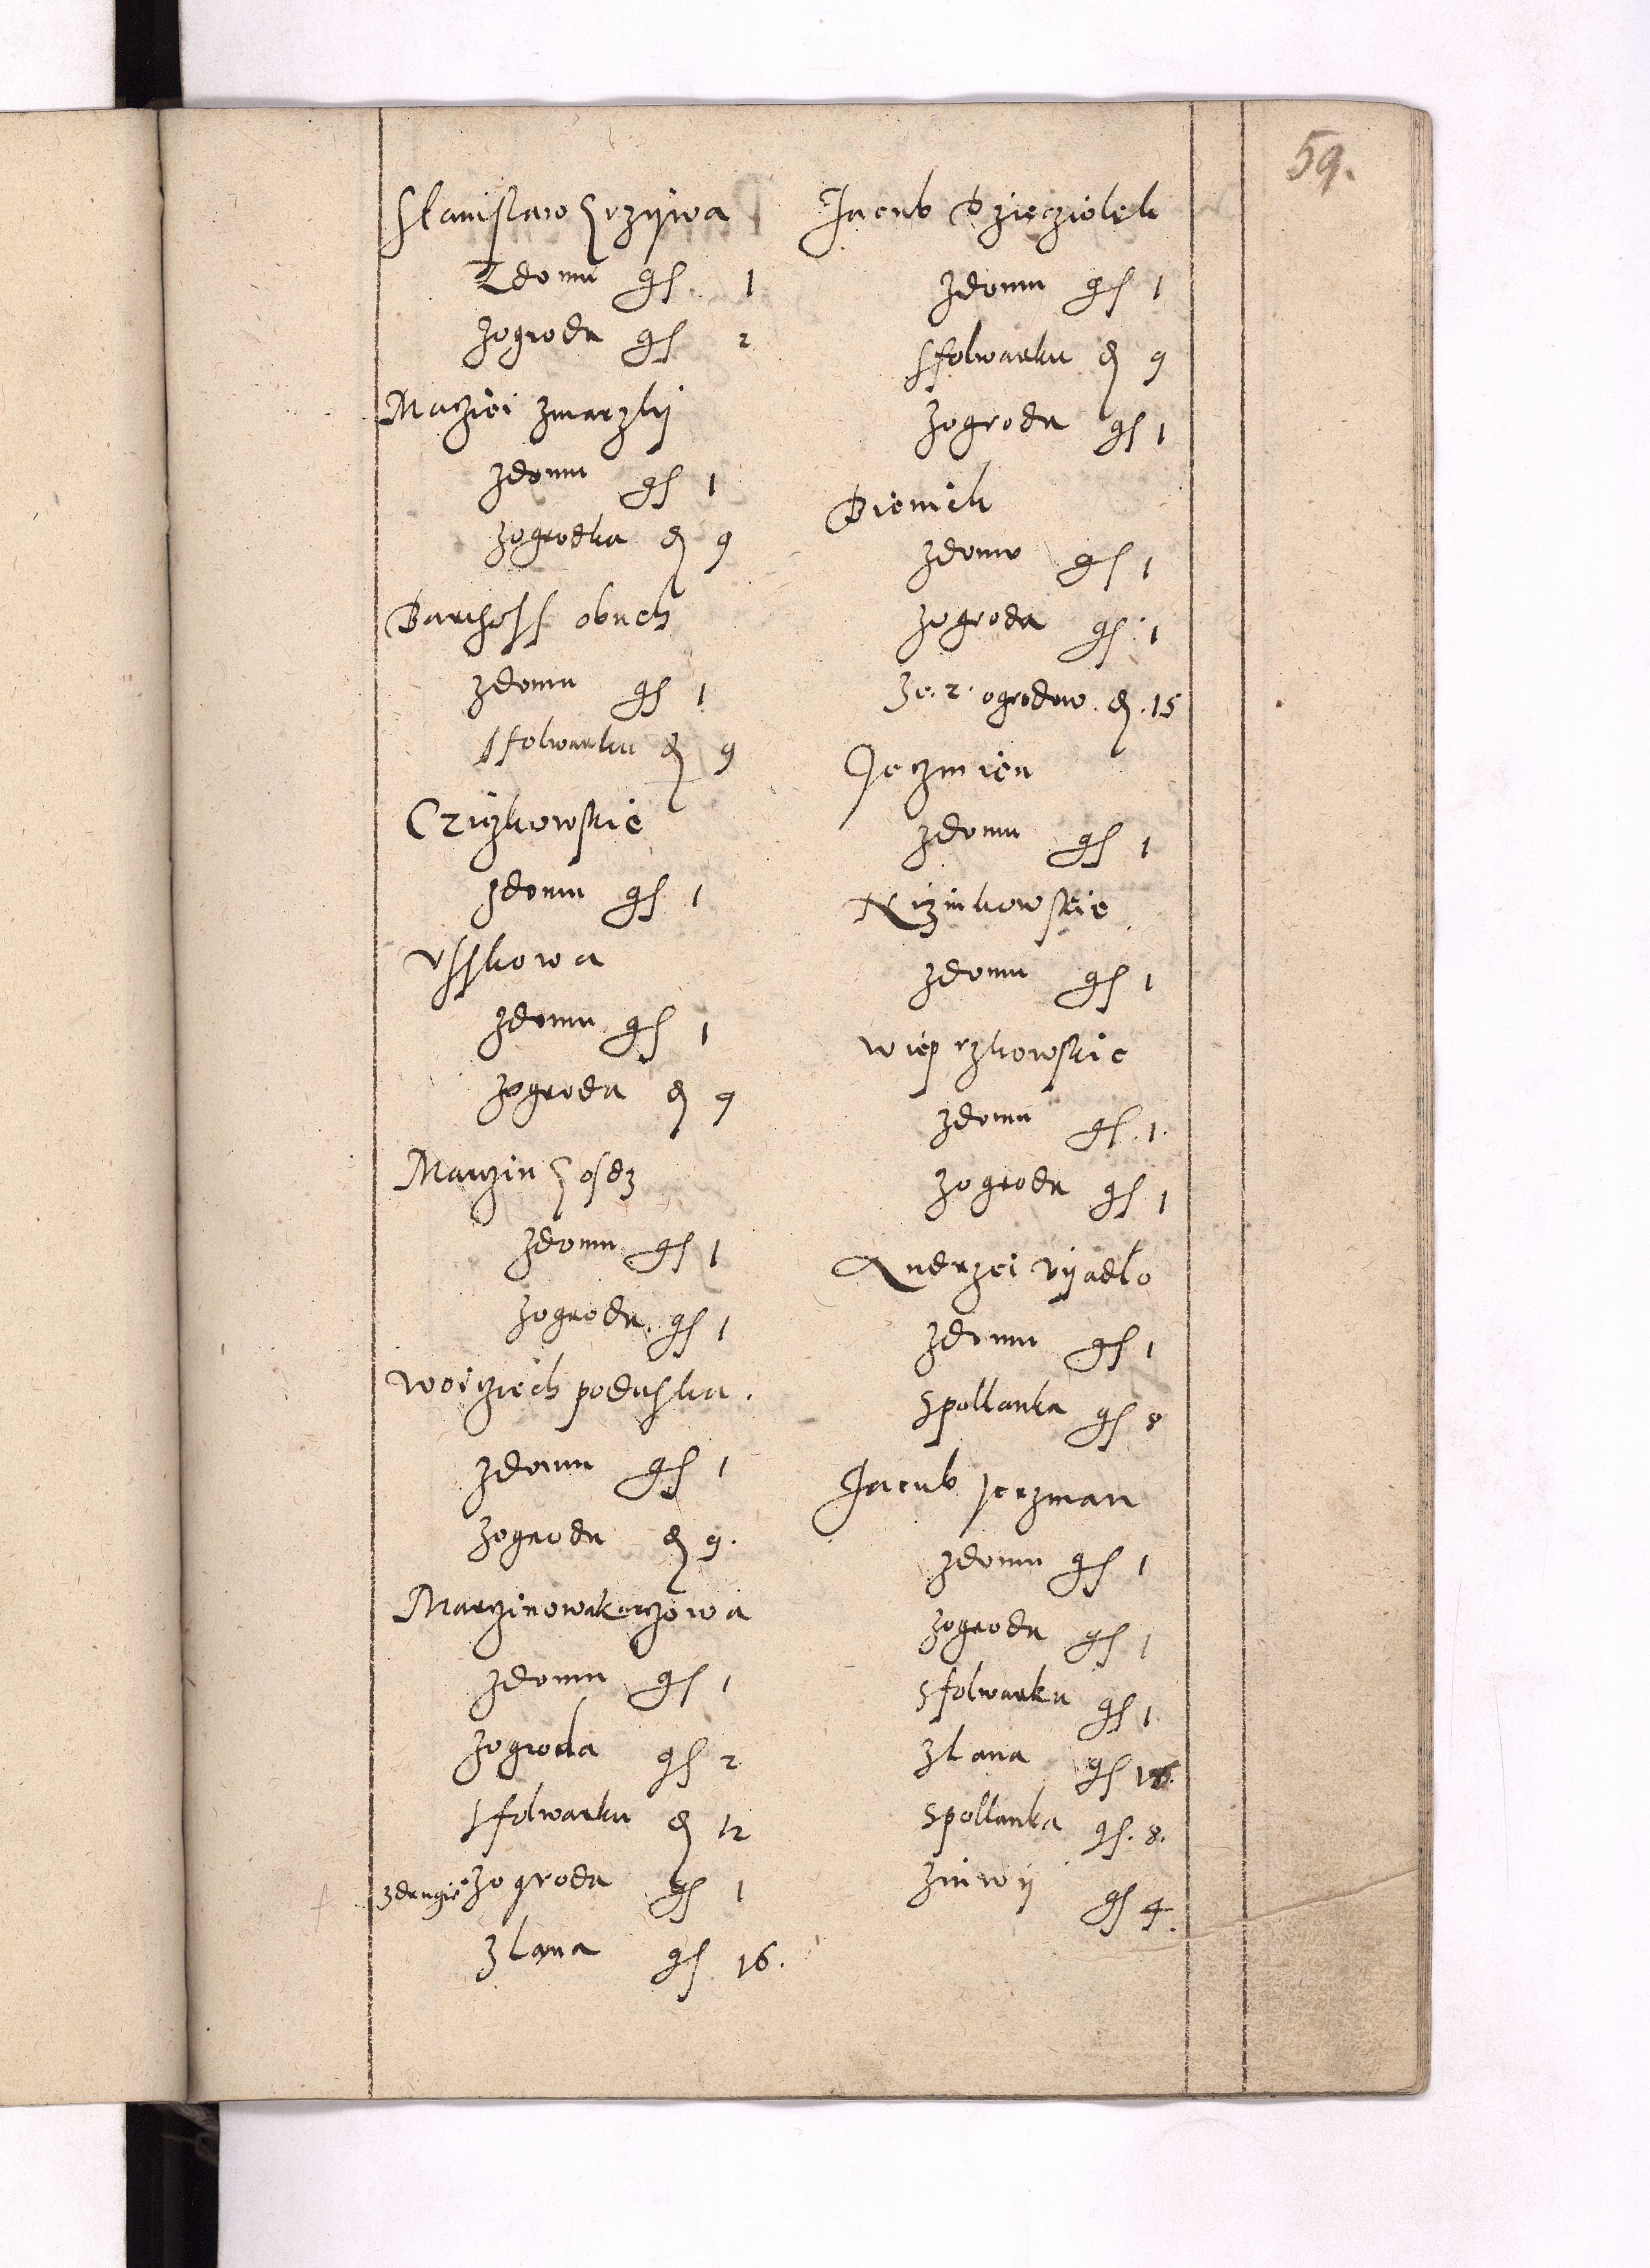 59.
Stanislaw Krzywa
Zdomu gs 1
Zogroda gs 2
Macziei Zmarzlij
Zdomu gs 1
Zogrodka d 9
Barthoss obuch
Zdomu gs 1
sfolwarku d 9
Cziżkowskie
Zdomu gs 1
Usskowa
Zdomu gs 1
Zogroda d 9
Marczin
Zdomu gs 1
Zogrodu gs 1
Woicziech poduska.
Zdomu gs 1
Zogrodu d 9.
Marczinowa
Zdomu gs 1
Zogroda gs 2
sfolwarku d 12
zdrugie Zogroda gs 1
Zlana gs 16.
Jacub Dziecziolek
Zdomu gs 1
sfolwarku d 9
Zogrodu gs 1
Bienick
Zdomu gs 1
Zogroda gs 1
Ze. 2. ogrodow. d. 15
Jeczmien
Zdomu gs 1
Zdomu gs 1
Wieprzkowskie
Zdomu gs. 1.
Zogrodu gs 1
Andrzei Uyadlo
Zdomu gs 1
Spollanka gs 8
Jacub Jerzman
Zdomu gs 1
Zogrodu gs 1
Sfolwarku gs 1
Zlana gs
Spollanka gs. 8.
Zniwy gs 4.